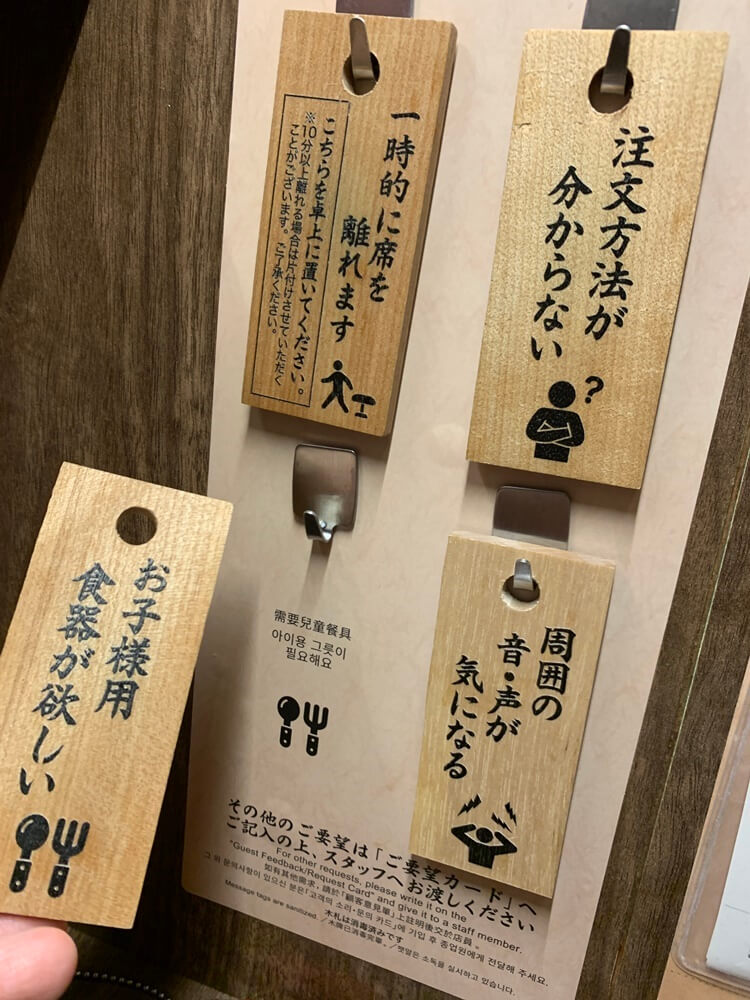 一時的に席を
離れます
こちらを卓上に置いてください。
※10分以上離れる場合は片付けさせていただく
ことがございます。ご了承ください。
注文方法が
分からない
?
お子様用
食器が欲しい
需要兒童餐具
아이용 그릇이
필요해요
周囲の
音・声が
気になる
その他のご要望は「ご要望カード」へ
ご記入の上、スタッフへお渡しください
For other requests, please write it on the
"Guest Feedback/Request Card" and give it to a staff member.
如有其他需求，請於「顧客意見單」上註明後交於店員。
그 외 문의사항이 있으신 분은「고객의 소리·문의 카드」에 기입 후 종업원에게 전달해 주세요.
木札は消毒済みです
Message tags are sanitized. / 木牌已消毒完畢。 / 팻말은 소독을 실시하고 있습니다.